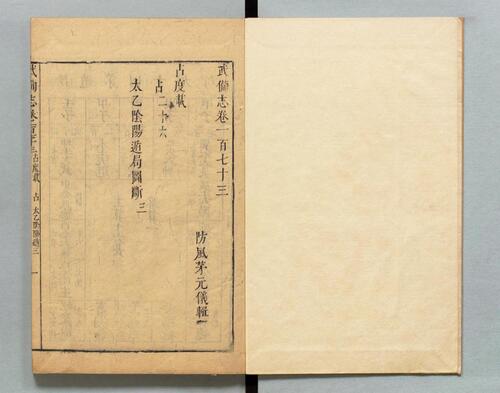 武備志卷一百七十三
防風茅元儀輯
占度載
占二十六
太乙陰陽遁局圖斷三
武備志 卷一百七十三 占度載 占 太乙陰陽遁三 一